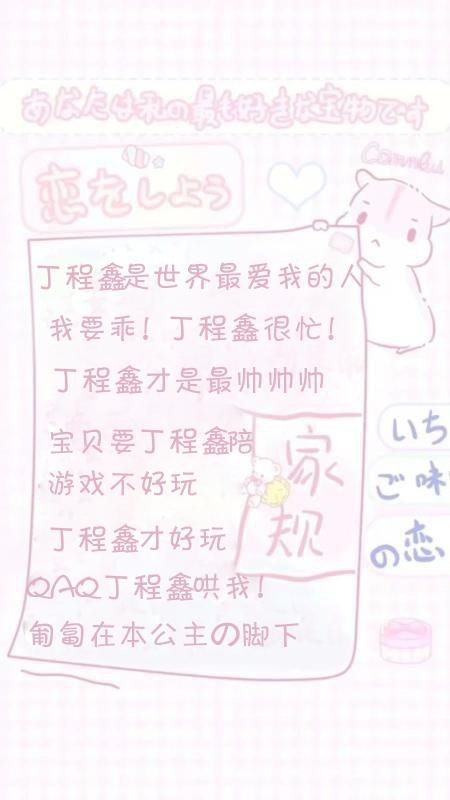 あなたは私の最も好きな宝物です
恋をしよう
丁程鑫是世界最爱我的人
我要乖！丁程鑫很忙！
丁程鑫才是最帅帅帅
宝贝要丁程鑫陪
游戏不好玩
丁程鑫才好玩
QAQ丁程鑫哄我！
匍匐在本公主の脚下
家
规
いち
ご味
の恋